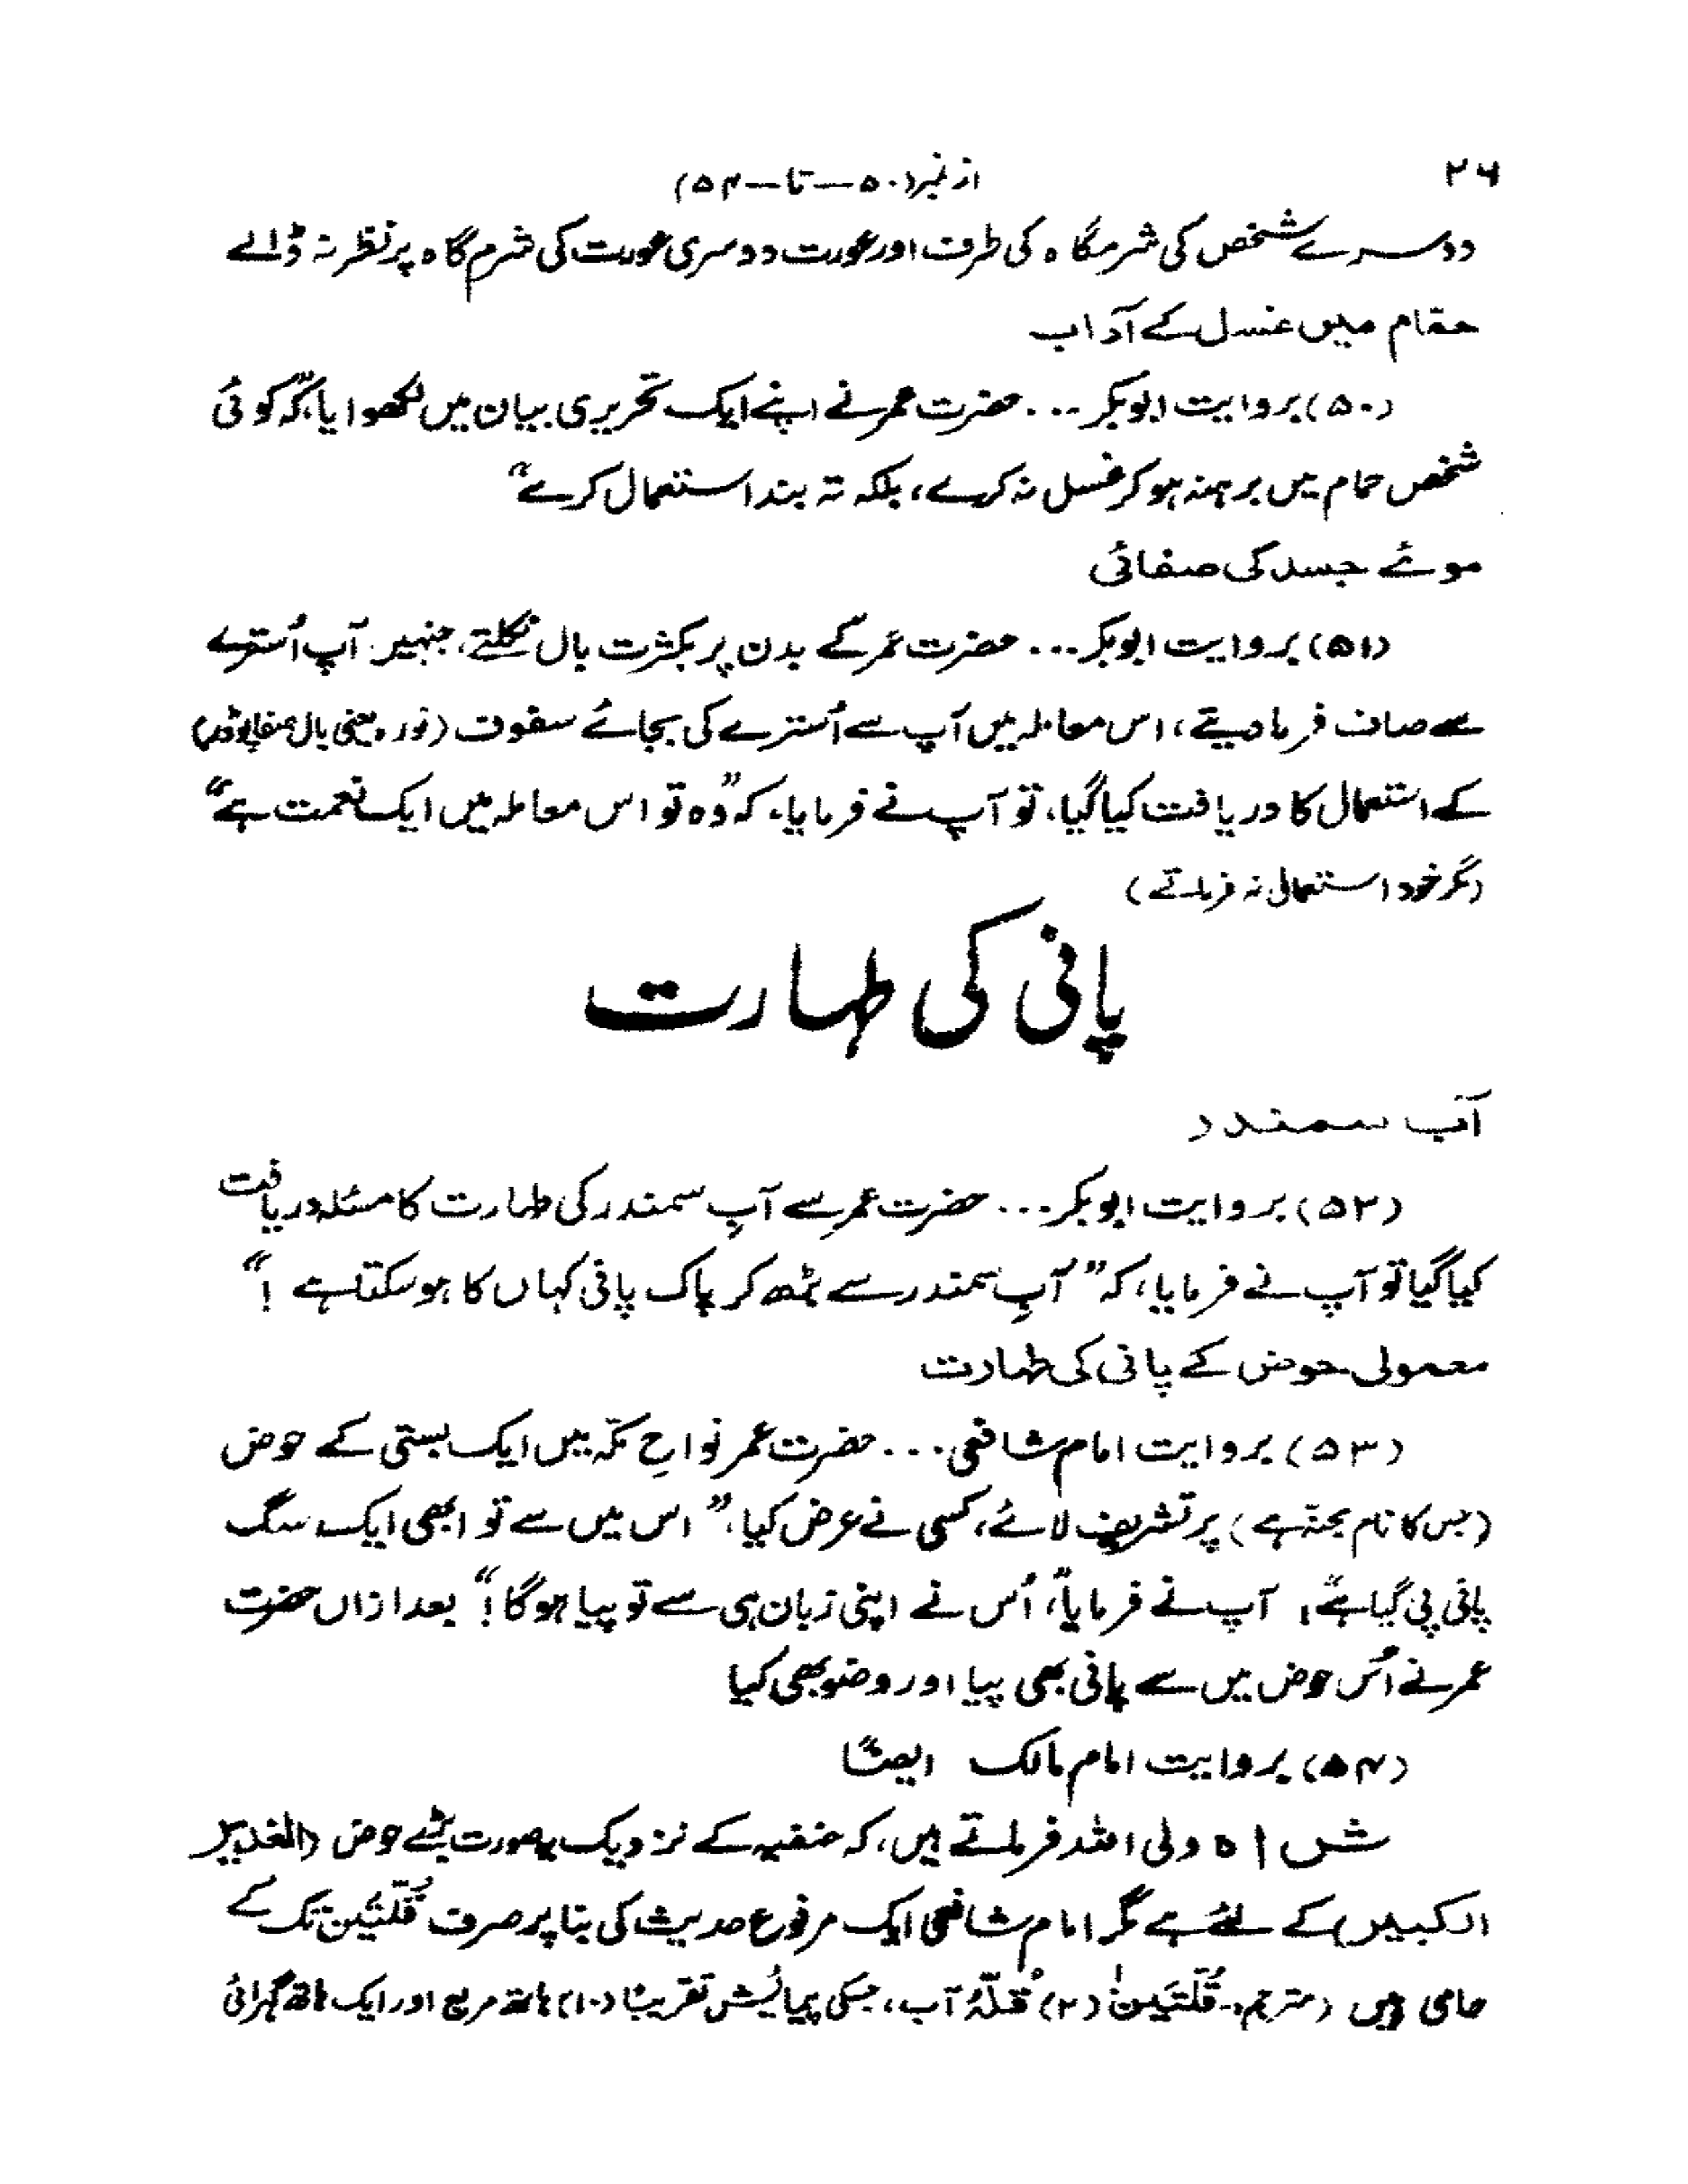 ۲۶
از نمبر (۵۰—تا—۵۴)
دوسرے شخص کی شرمگاہ کی طرف اور عورت دوسری عورت کی شرم گاہ پر نظر نہ ڈالے
حمّام میں غسل کے آداب
(۵۰) بروایت ابوبکر ... حضرت عمر نے اپنے ایک تحریری بیان میں لکھوایا، کہ "کوئی
شخص حمام میں برہنہ ہو کر غسل نہ کرے، بلکہ تہ بند استعمال کرے"
موئے جسد کی صفائی
(۵۱) بروایت ابوبکر ... حضرت عمر کے بدن پر بکثرت بال نکلتے، جنہیں آپ اُسترے
سے صاف فرما دیتے، اس معاملہ میں آپ سے اُسترے کی بجائے سفوف (نورہ یعنی بال صفا پوڈر)
کے استعمال کا دریافت کیا گیا، تو آپ نے فرمایا، کہ "وہ تو اس معاملہ میں ایک نعمت ہے"
(مگر خود استعمال نہ فرماتے)
پانی کی طہارت
آب سمندر
(۵۲) بروایت ابوبکر ... حضرت عمر سے آبِ سمندر کی طہارت کا مسئلہ دریافت
کیا گیا تو آپ نے فرمایا، کہ "آبِ سمندر سے بڑھ کر پاک پانی کہاں کا ہو سکتا ہے !"
معمولی حوض کے پانی کی طہارت
(۵۳) بروایت امام شافعی ... حضرت عمر نواحِ مکّہ میں ایک بستی کے حوض
(جس کا نام مجنّہ ہے) پر تشریف لائے، کسی نے عرض کیا، "اس میں سے تو ابھی ایک سگ
پانی پی گیا ہے"، آپ نے فرمایا، "اُس نے اپنی زبان ہی سے تو پیا ہوگا !" بعد ازاں حضرت
عمر نے اُس حوض میں سے پانی بھی پیا اور وضو بھی کیا
(۵۴) بروایت امام مالک ایضًا
شاہ ولی اللہ فرماتے ہیں، کہ حنفیہ کے نزدیک یہ صورت بڑے حوض (الغدیر
الکبیر) کے لئے ہے مگر امام شافعی ایک مرفوع حدیث کی بنا پر صرف قُلّتَین تک کے
حامی ہیں (مترجم:- قُلّتَین (۲) قُلّۂ آب، جسکی پیمائش تقریبًا (۱۰) ہاتھ مربع اور ایک ہاتھ گہرائی